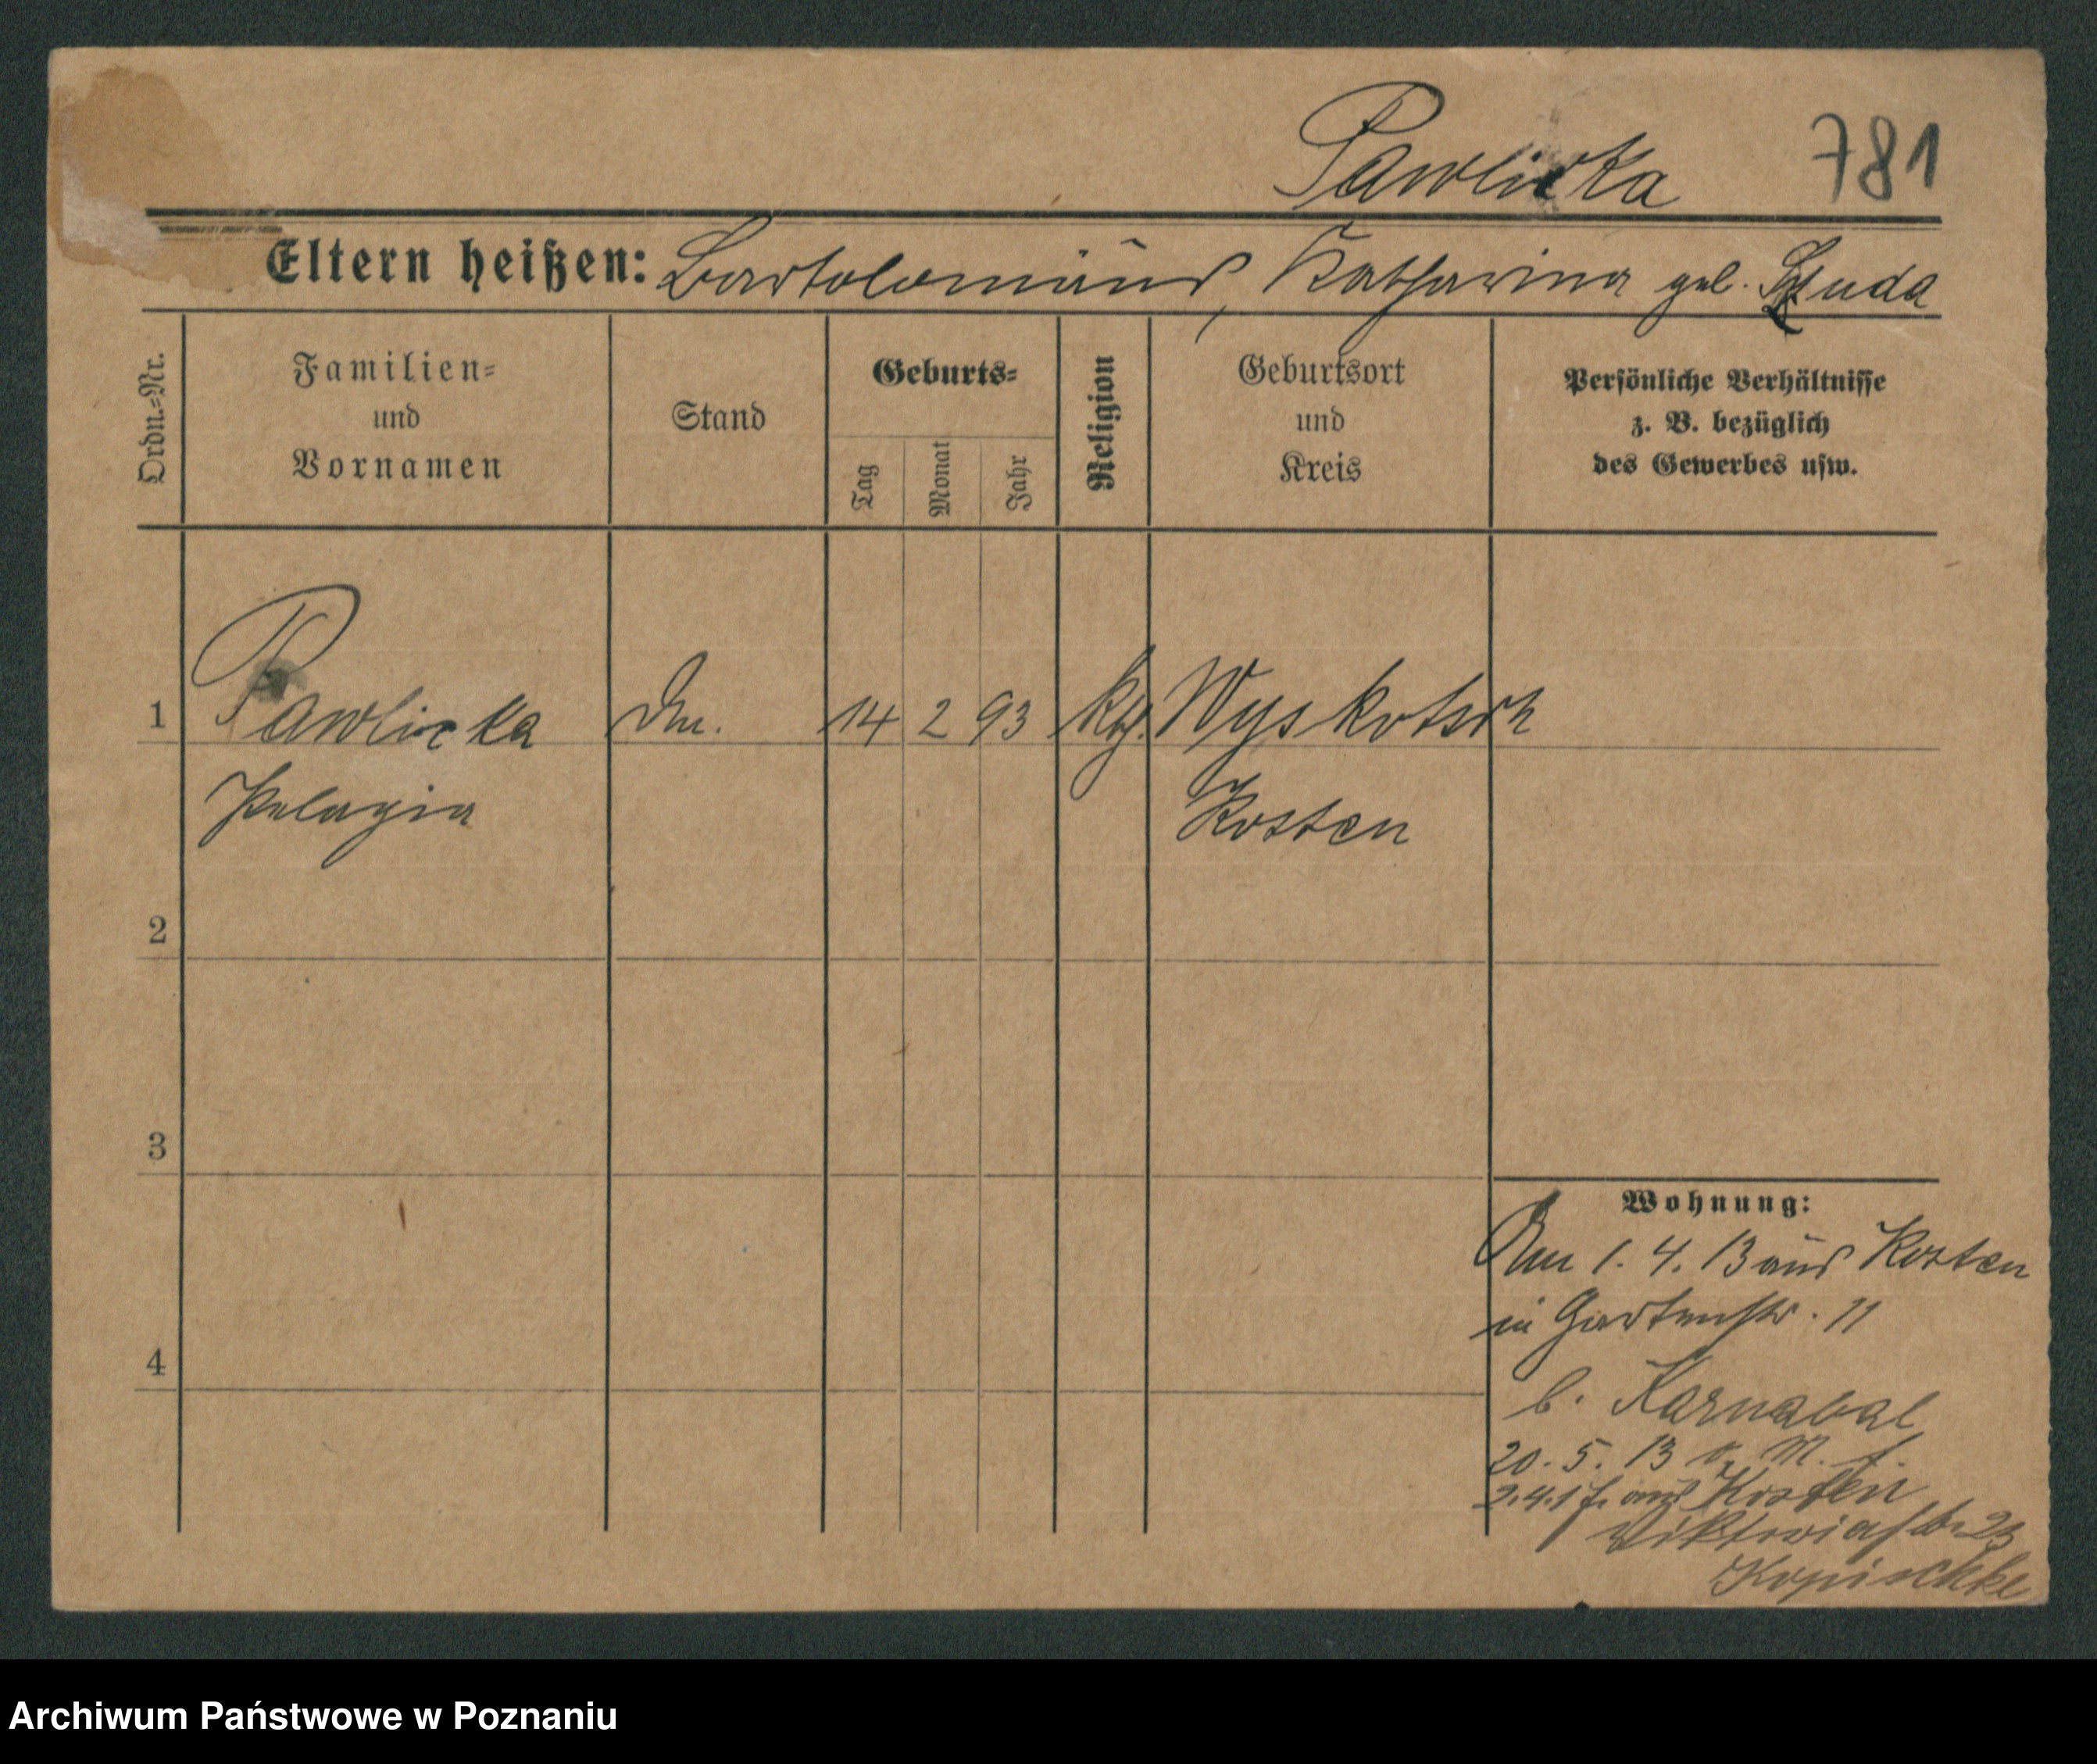 Pawlicka 781
Eltern heißen: Bartolomäus, Katharina geb. Szuda
Ordn.=Nr.
Familien=
und
Vornamen
Stand
Geburts=
Tag
Monat
Jahr
Religion
Geburtsort
und
Kreis
Persönliche Verhältnisse
z. B. bezüglich
des Gewerbes usw.
1 Pawlicka 14 2 93 Wyskotsch
Pelagia Kosten
2
3
4
Wohnung:
Am 1. 4. 13 aus Kosten
in Gartenstr. 11
b. Karnabal
20. 5. 13
aus Kosten
Viktoriastr 23
Kopischke
Archiwum Państwowe w Poznaniu